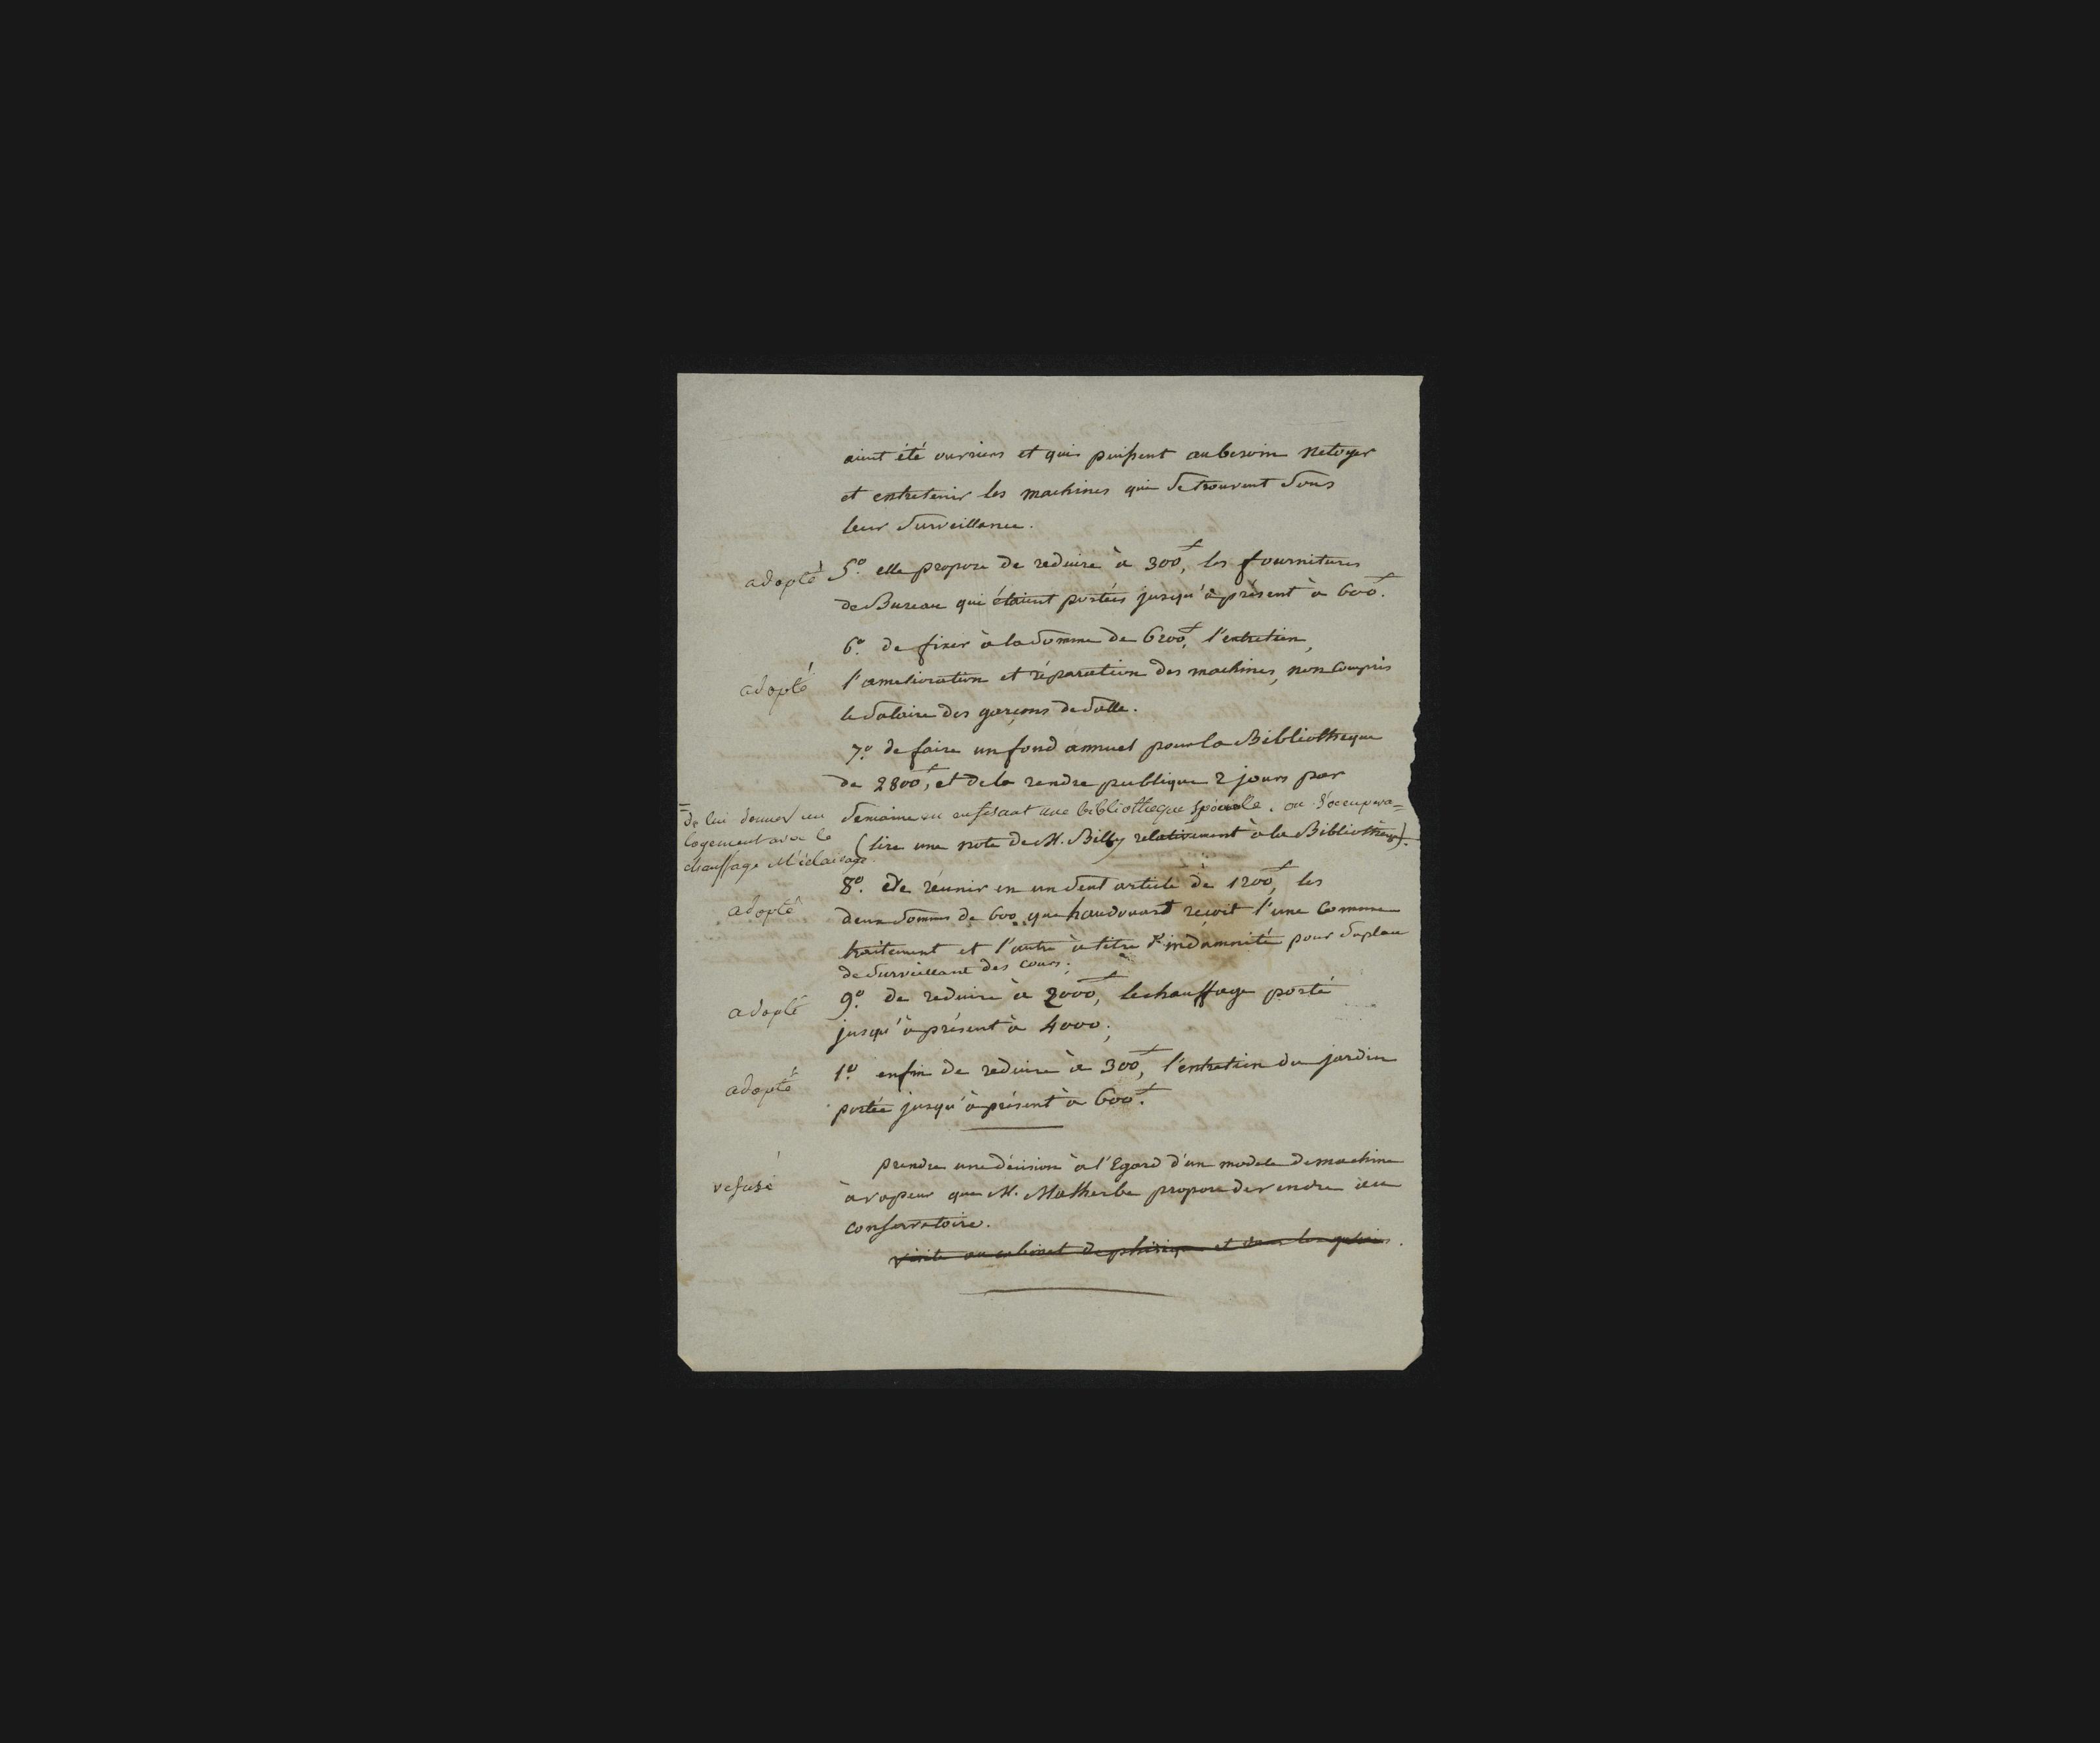 aient été ouvriers et qui puissent au besoin netoyer
et entretenir les machines qui se trouvent sous
leur surveillance.
adopté
5.º elle propose de reduire à 300ᶠ, les fournitures
de Bureau qui étaient portées jusqu'à présent à 600ᶠ.
6.º de fixer à la somme de 6200ᶠ, l'entretien,
adopté
l'amelioration et réparation des machines, non compris
le salaire des garçons de salle.
7.º de faire un fond annuel pour la Bibliotheque
de 2800ᶠ, et de la rendre publique 2 jours par
semaine en en faisant une bibliotheque spéciale. on s'occupera=
=de lui donner un
logement avec le
chauffage et l'éclairage.
(lire une note de M. Billy relativement à la Bibliothèque).
8.º De réunir en un seul article de 1200ᶠ, les
adopté
deux sommes de 600 que haudouart reçoit l'une comme
traitement et l'autre à titre d'indamnité pour sa place
de surveillant des cours;
adopté
9.º de reduire à 2000ᶠ, le chauffage porté
jusqu'à présent à 4000;
adopté
1º enfin de reduire à 300ᶠ, l'entretien du jardin
portée jusqu'à présent à 600ᶠ.
prendre une décision à l'Egard d'un modele de machine
refusé
à vapeur que M. Matherbe propose de vendre au
conservatoire.
visite au cabinet de phisique et dans les